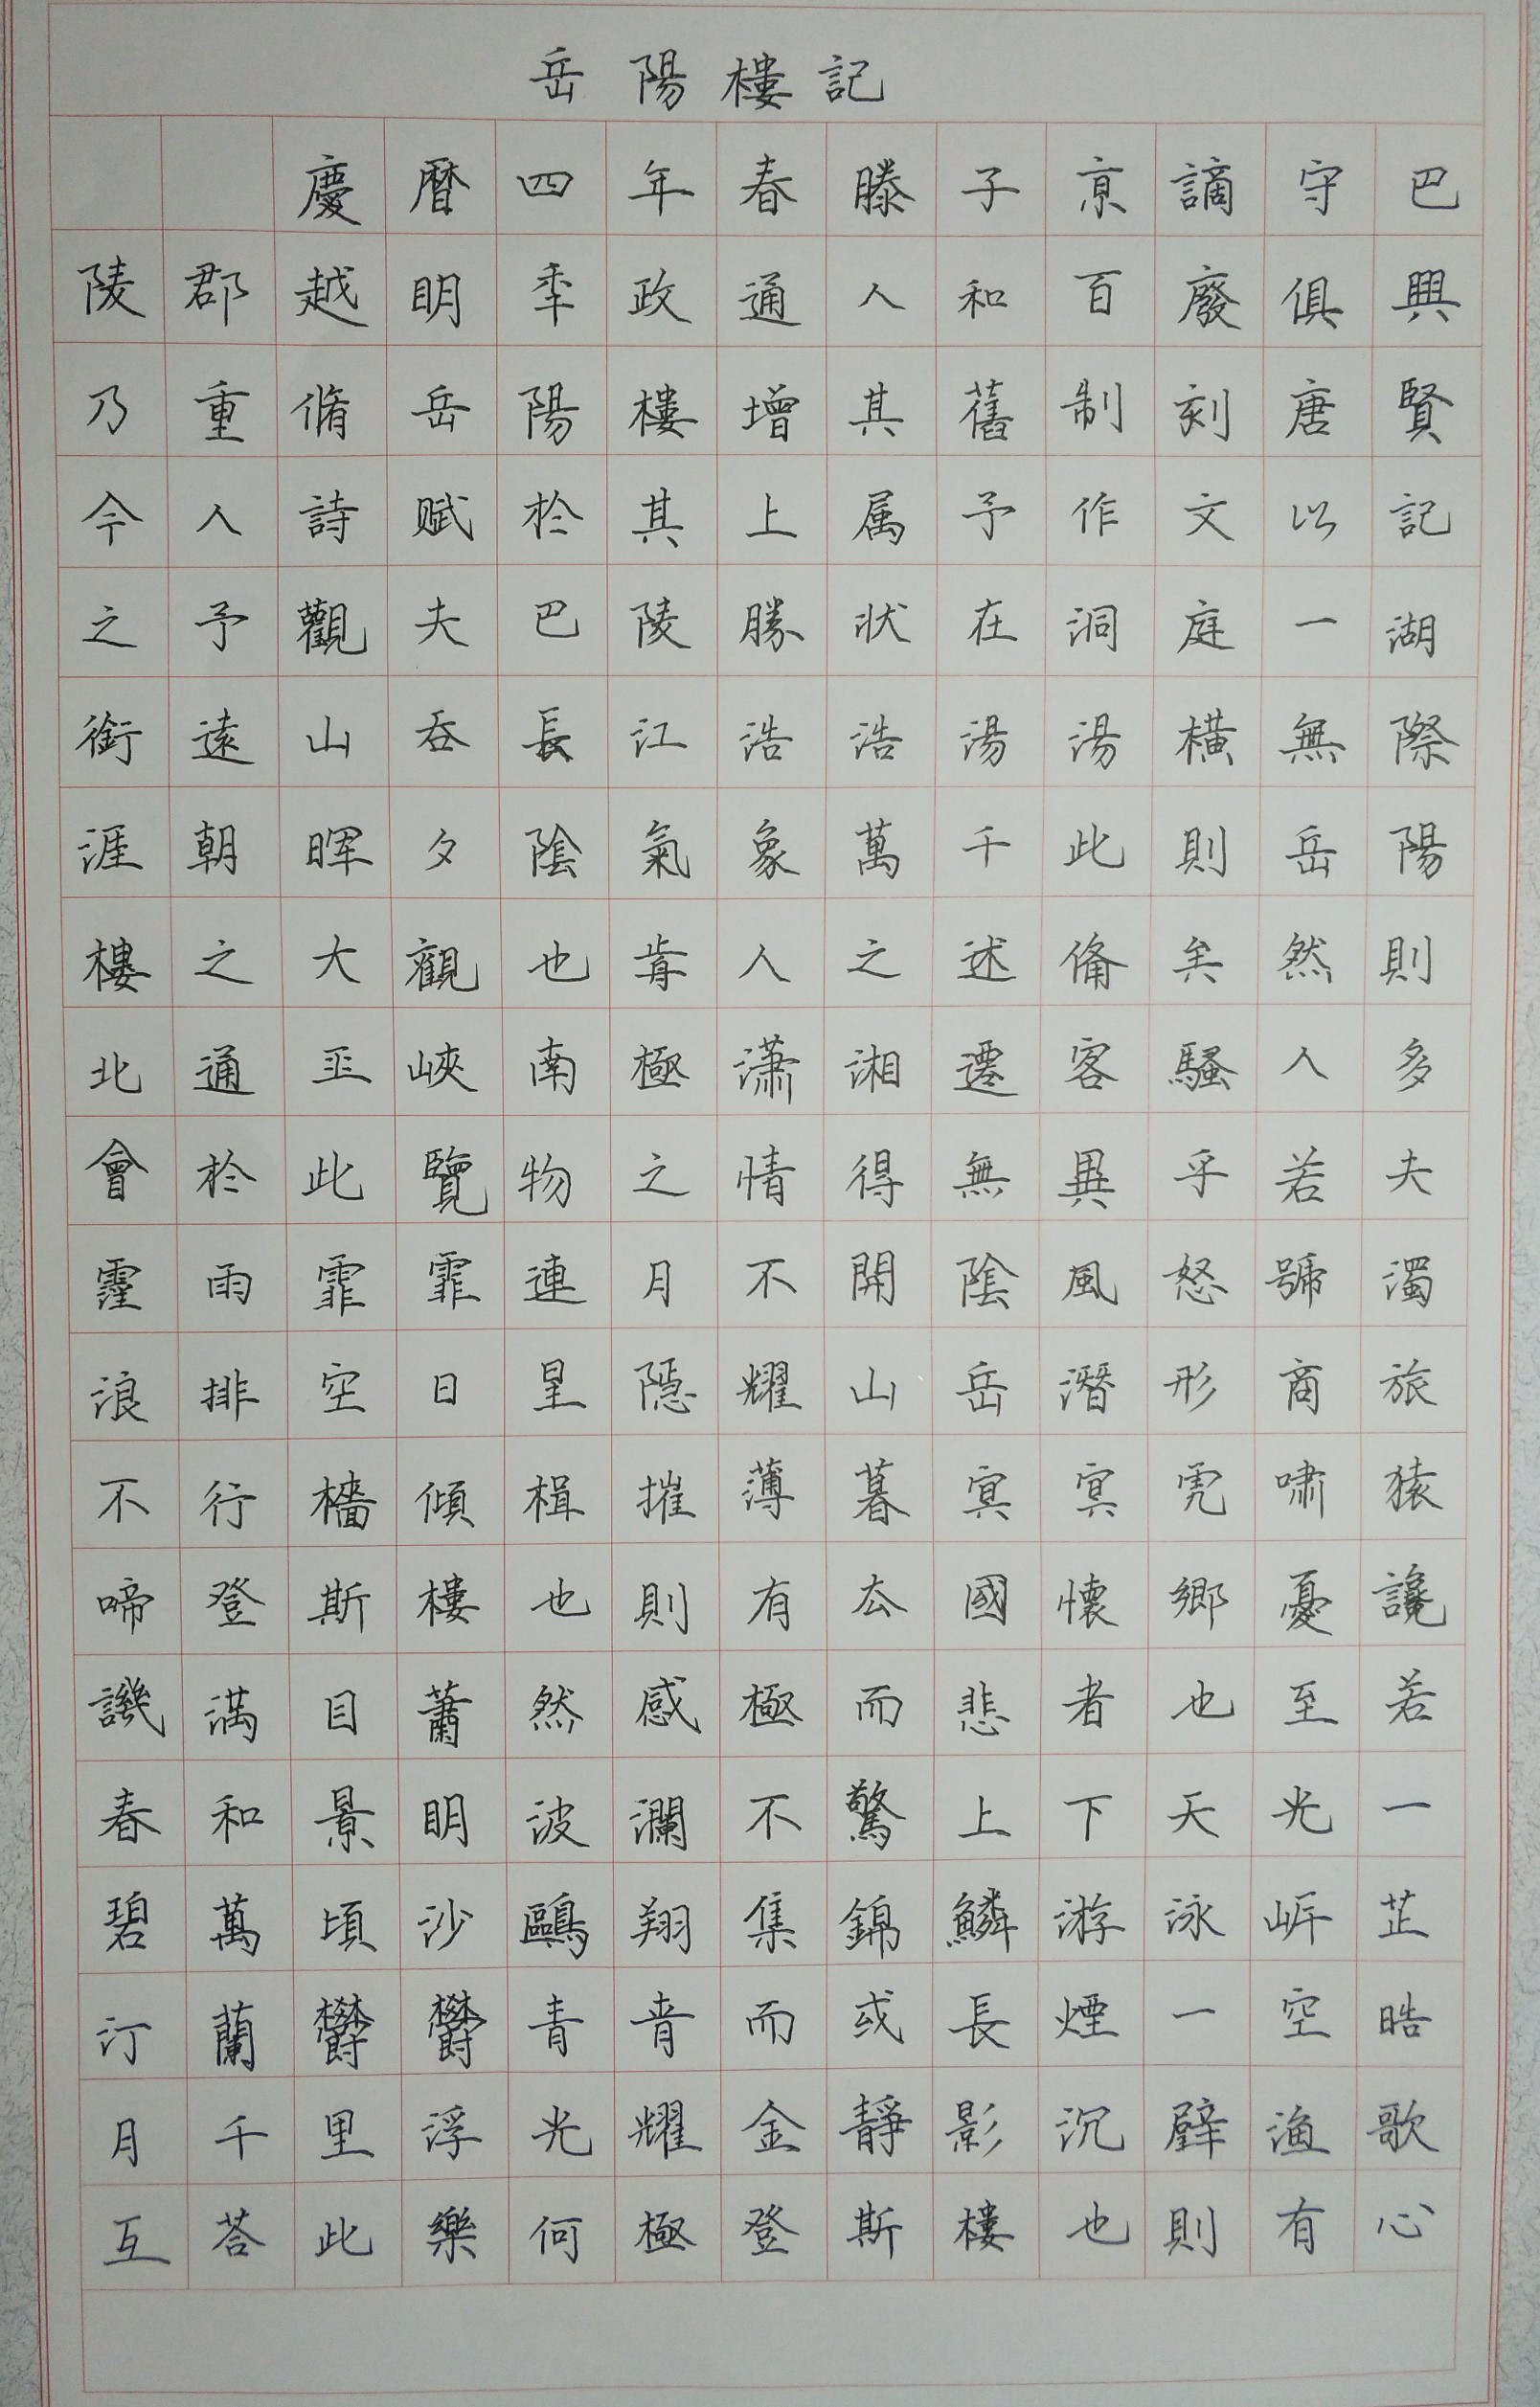 岳陽樓記
慶曆四年春滕子京謫守巴
陵郡越明年政通人和百廢俱興
乃重脩岳陽樓增其舊制刻唐賢
今人詩赋於其上属予作文以記
之予觀夫巴陵勝狀在洞庭一湖
銜遠山吞長江浩浩湯湯橫無際
涯朝暉夕陰氣象萬千此則岳陽
樓之大觀也前人之述備矣然則
北通巫峽南極瀟湘遷客騷人多
會於此覽物之情得無異乎若夫
霪雨霏霏連月不開陰風怒號濁
浪排空日星隱耀山岳潛形商旅
不行檣傾楫摧薄暮冥冥虎嘯猿
啼登斯樓也則有去國懷鄉憂讒
譏滿目蕭然感極而悲者也至若
春和景明波瀾不驚上下天光一
碧萬頃沙鷗翔集錦鱗游泳岸芷
汀蘭欝欝青青而或長煙一空皓
月千里浮光耀金靜影沉璧漁歌
互荅此樂何極登斯樓也則有心